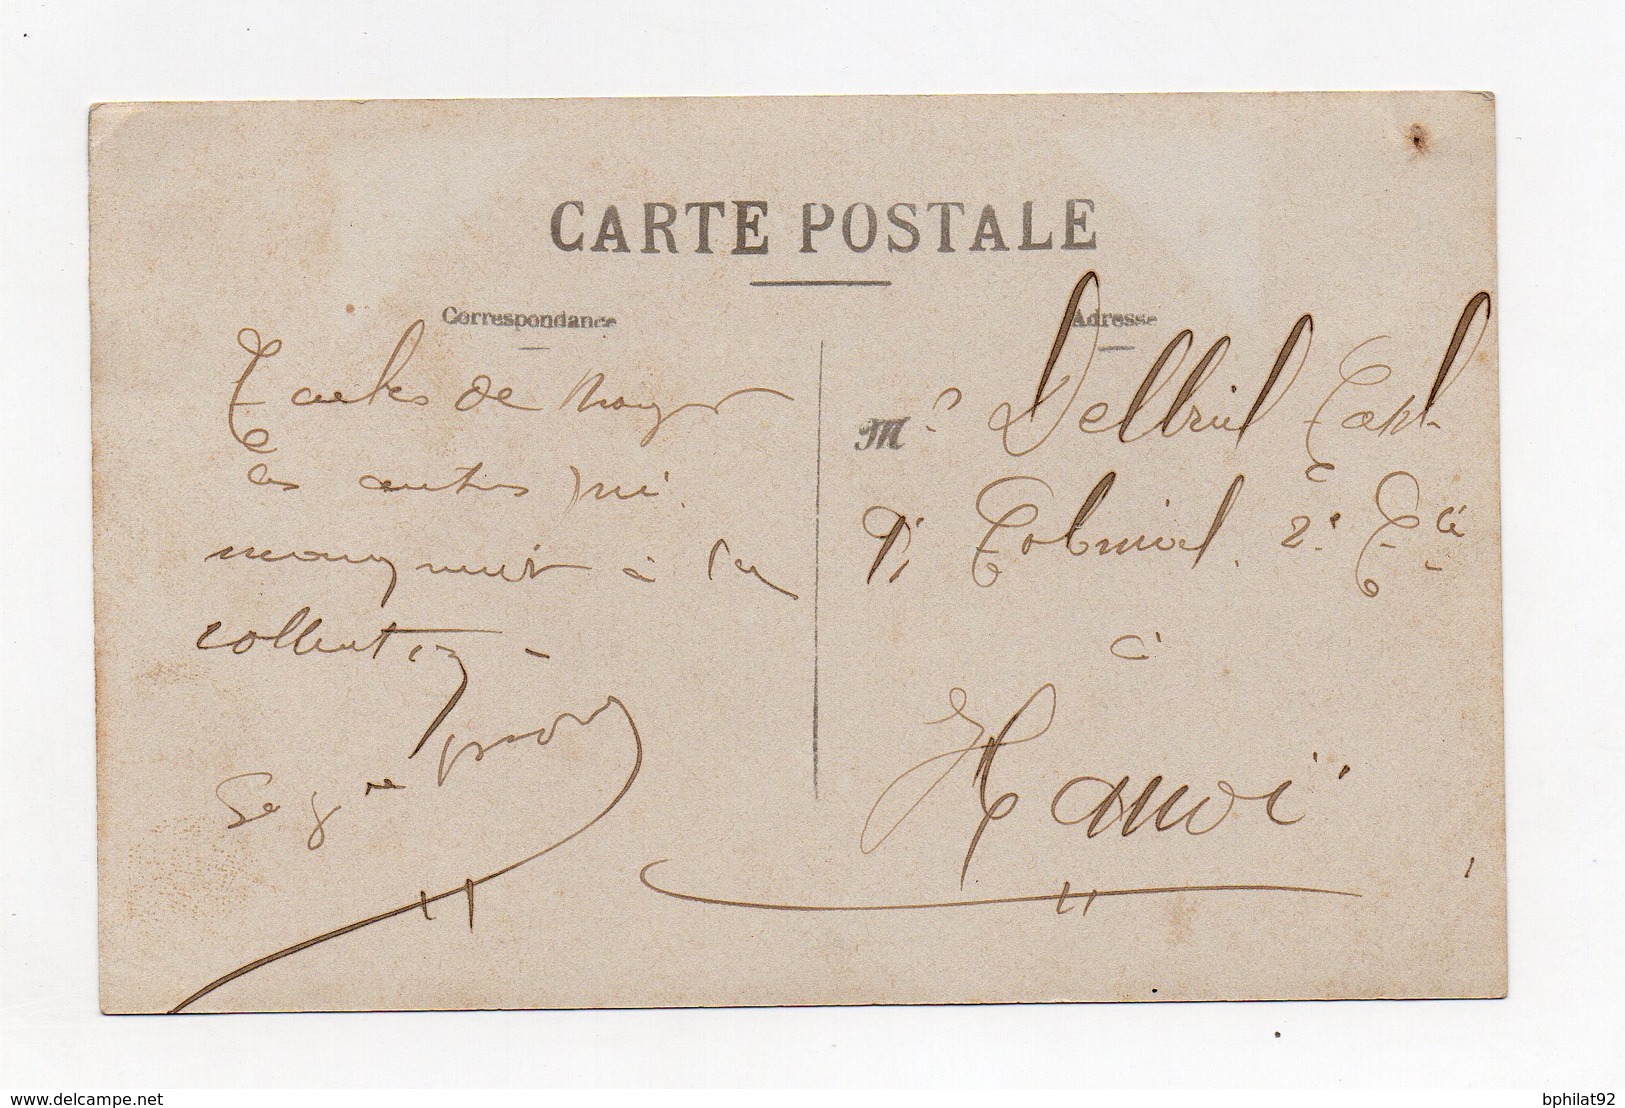 CARTE POSTALE
Correspondance
Tachez de
les autres qui
manquent à la
collection -
Adresse
M. Delbriel Capl
Rt Colonial 2e Cie
à
Hanoï
www.delcampe.net
bphilat92